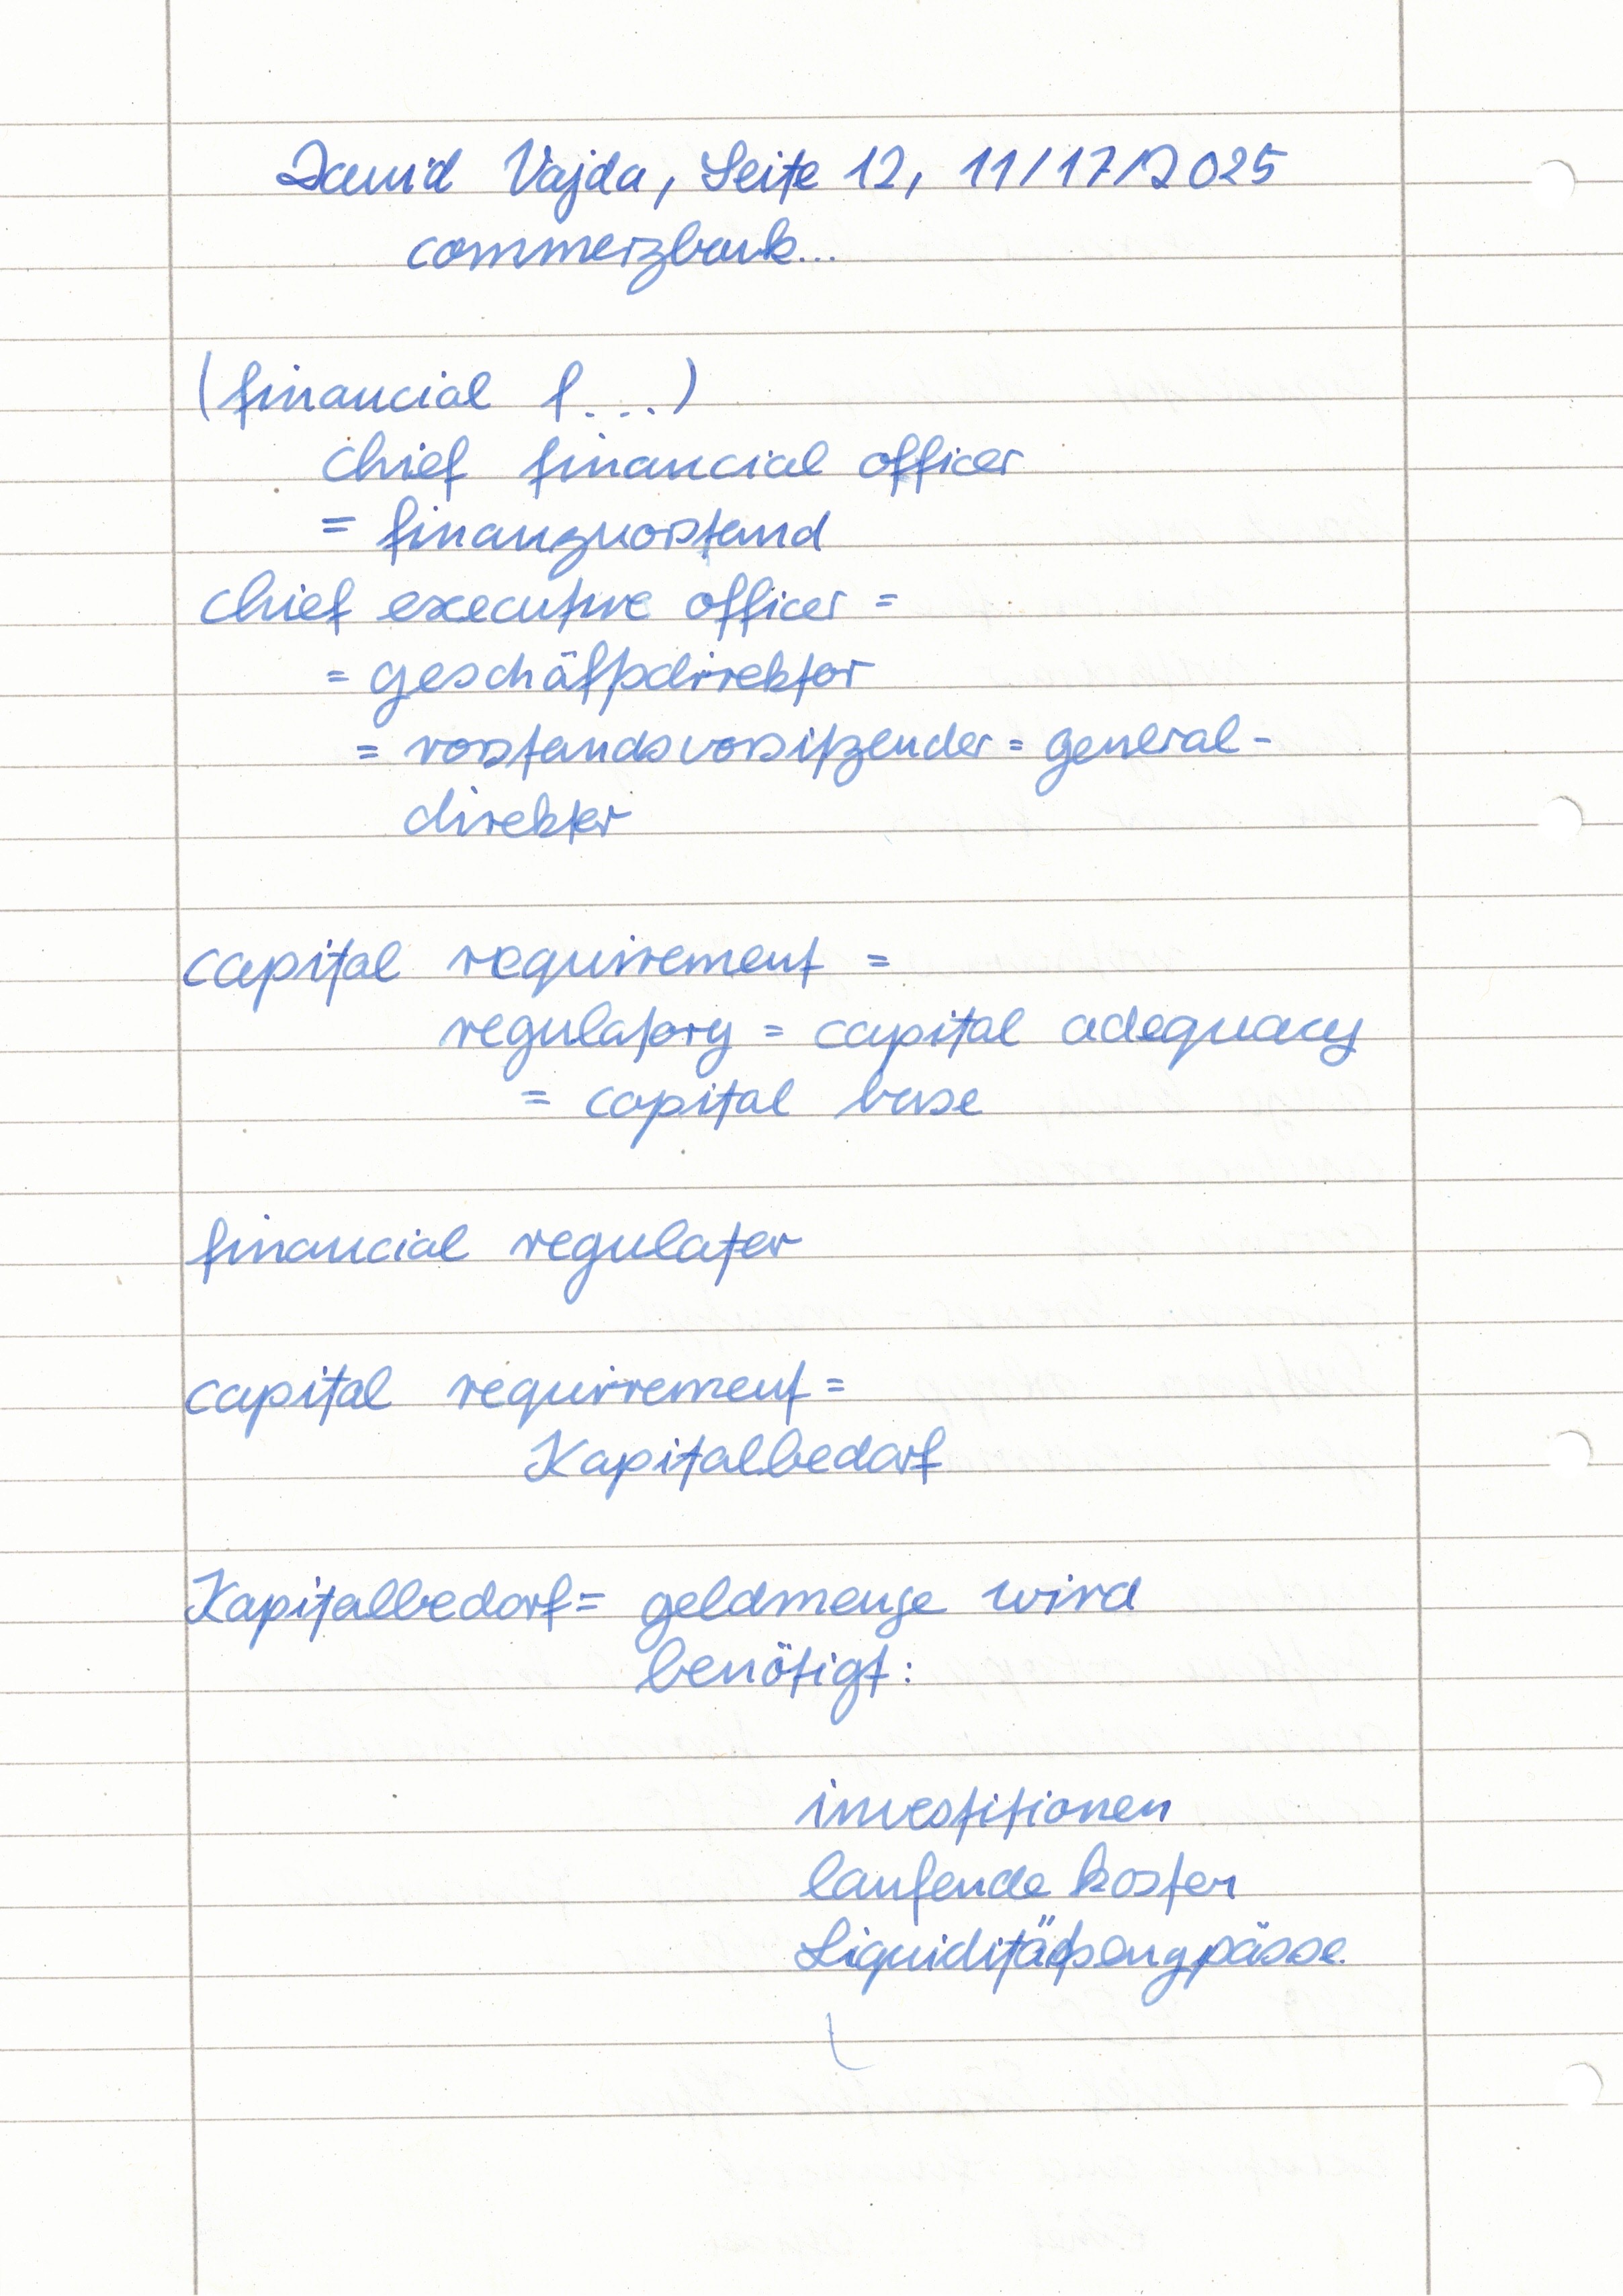 David Vajda, Seite 12, 11/17/2025
commerzbank...
(financial f....)
chief financial officer
= finanzvorstand
chief executive officer =
= geschäftsdirektor
= vorstandsvorsitzender = general-
direktor
capital requirement =
regulatory = capital adequacy
= capital base
financial regulator
capital requirement =
Kapitalbedarf
Kapitalbedarf = geldmenge wird
benötigt:
investitionen
laufende kosten
Liquiditätsengpässe.